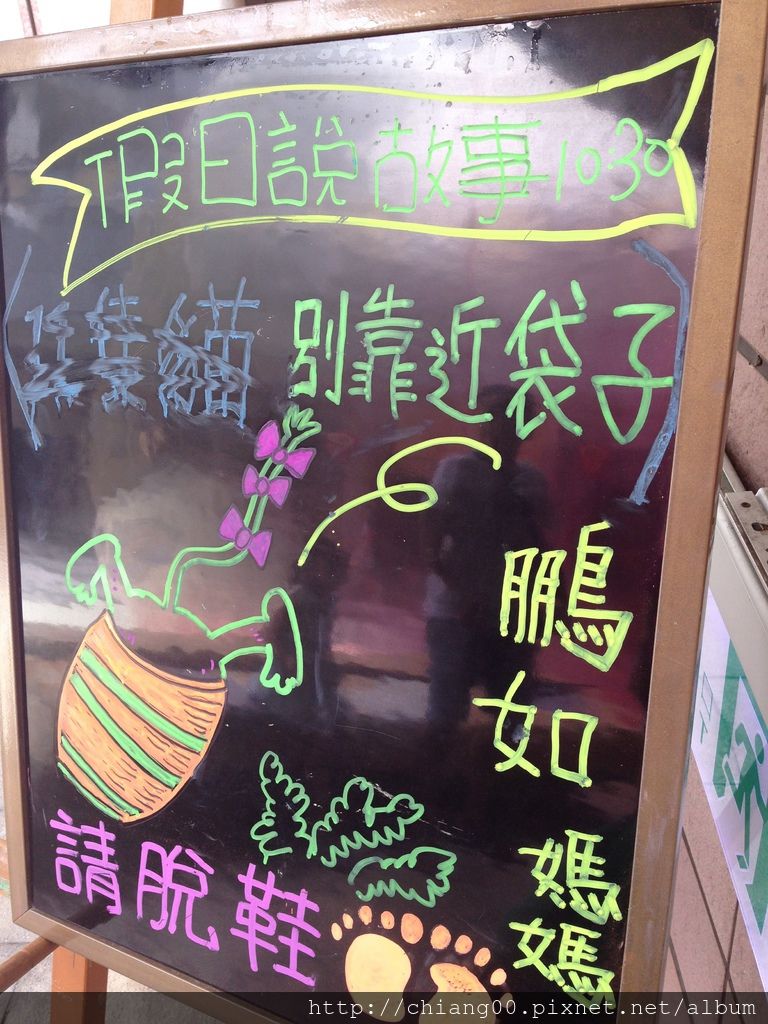 假日說故事10:30
貓 別靠近袋子
鵬如
媽媽
請脫鞋
http://chiang00.pixnet.net/album